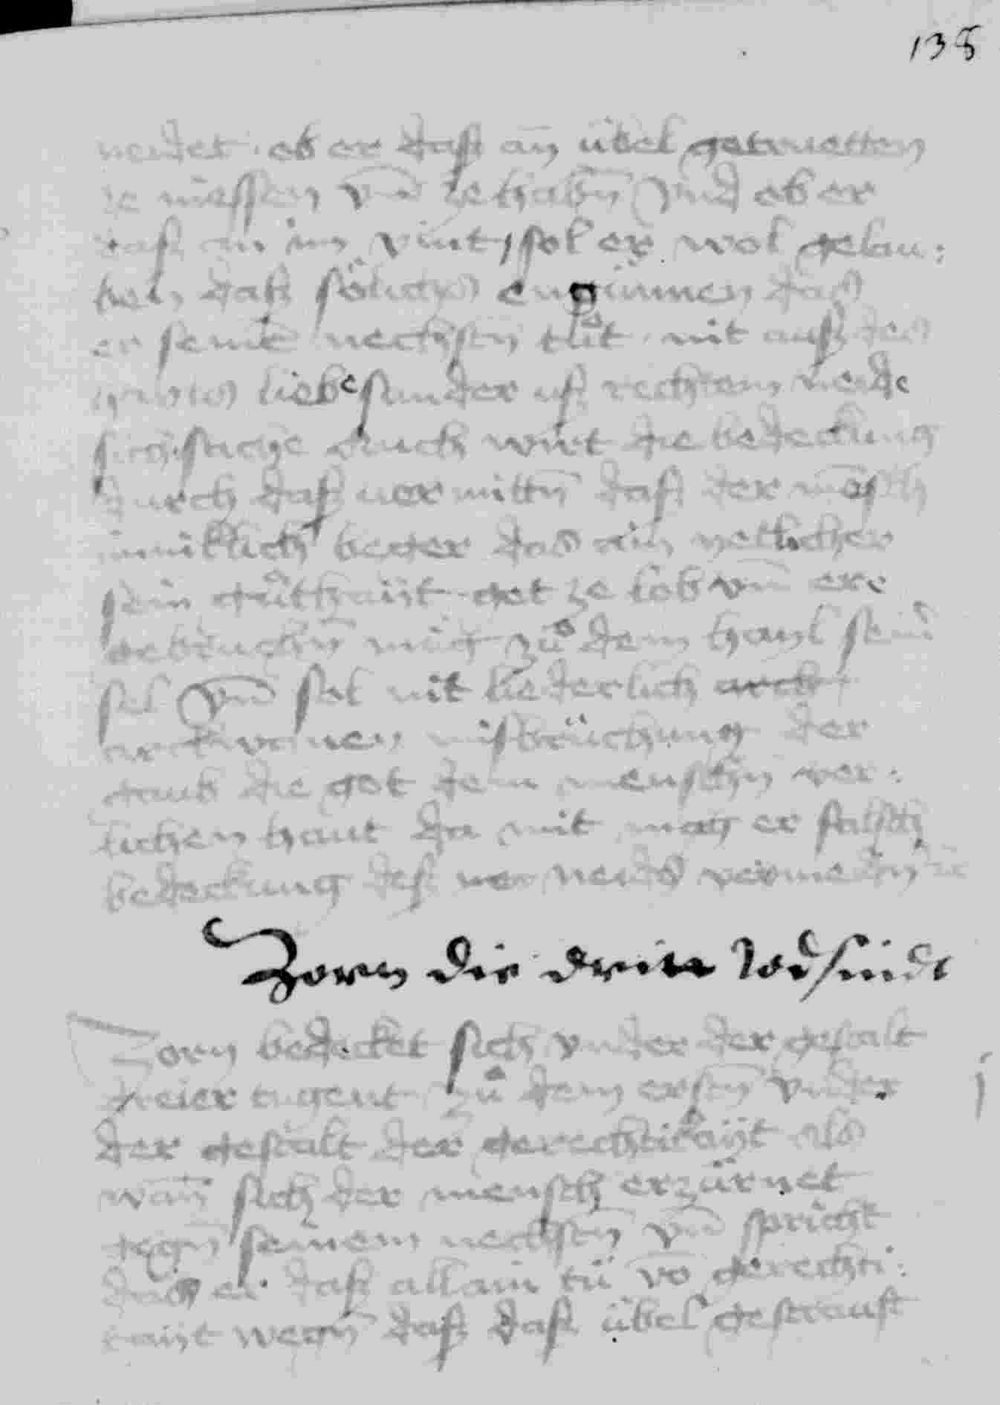 138
neidet · ob er daß an übel getruetten
ze niessen vnd ze habn̄ Vnd ob er
daß an im vint / sol er wol gelau:
ben daß sölichs engünnen das
er seinē nechstn̄ tůt · nit auß des
liebe sunder uß rechtem neide
sache durch wirt die bedeckung
durch daß vermittn̄ daß der mēsch
inniklich beger das ain yetlicher
sein gůtthait got ze lob vnd ere
gebruchn̄ müg zů dem hayl sein
sel Vnd sol nit liederlich arck
arckwonen mißbruchung der
gaub die got dem menschn̄ ver:
lichen haut da mit mag er
bedeckung deß neides vermeidn̄
Zorn die dritt Todsündt
Zorn bedecket sich vnder der gestalt
dreier tugent zů dem erstn̄ vnder
der gestalt der gerechtikait als
wan̄ sich der mensch erzürnet
gegn̄ seinem nechstn̄ vnd spricht
das er daß allain tů vō gerechti:
kait wegn̄ daß daß übel gestrauft